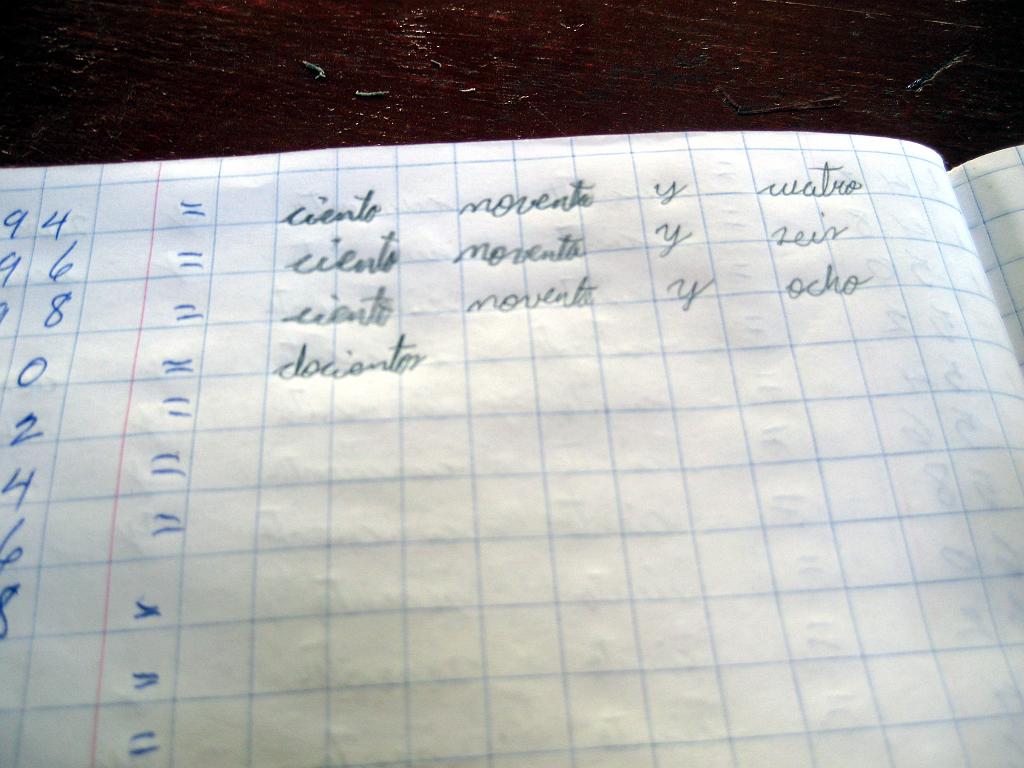 94 = ciento noventa y cuatro
96 = ciento noventa y seis
98 = ciento noventa y ocho
0 = docientos
2 =
4 =
6 =
8 =
=
=